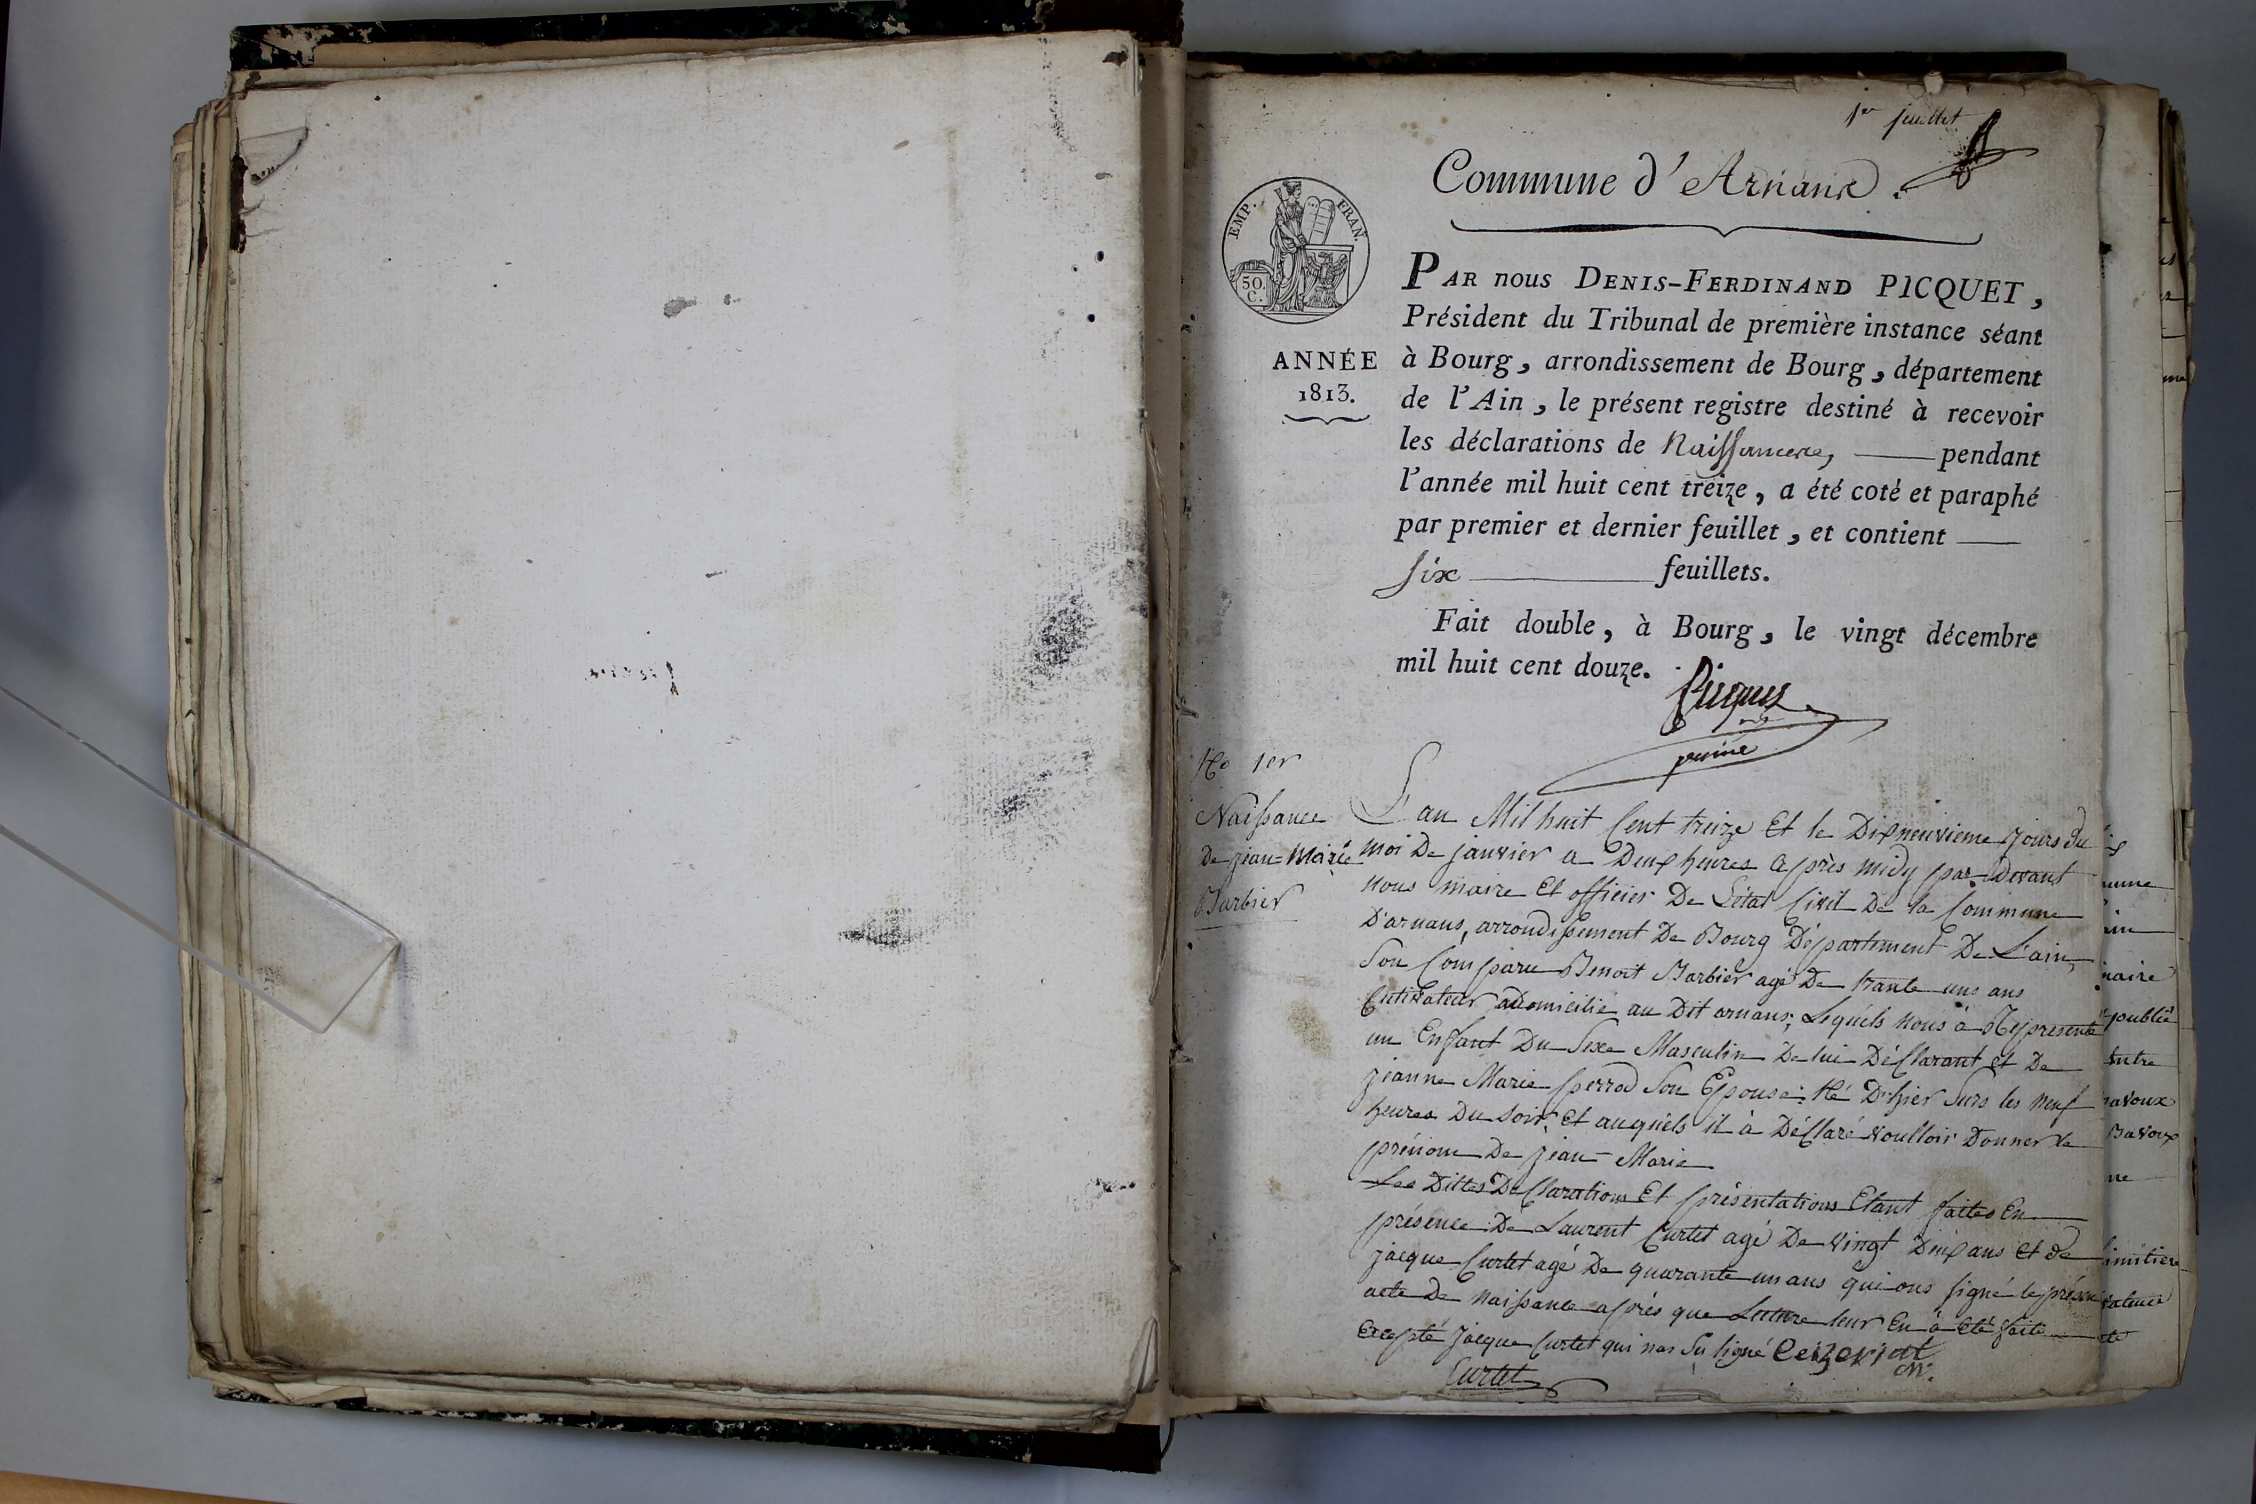 1er feuillet
Commune d'Arnans.
EMP. FRAN.
50. C.
ANNÉE
1813.
PAR nous DENIS-FERDINAND PICQUET,
Président du Tribunal de première instance séant
à Bourg, arrondissement de Bourg, département
de l'Ain, le présent registre destiné à recevoir
les déclarations de Naissances, pendant
l'année mil huit cent treize, a été coté et paraphé
par premier et dernier feuillet, et contient
six feuillets.
Fait double, à Bourg, le vingt décembre
mil huit cent douze.
Picquet
No 1er
Naissance
De jean=Marie
Barbier
L'an Mil huit Cent treize Et le Dixneuvieme jours du
moi De janvier a Deux heures après midy par Devant
nous maire Et officier De L'état Civil De la Commune
D'arnans, arrondissement De Bourg Département De L'ain,
Son Comparu Benoit Barbier agé De trante uns ans
Cultivateur adomicilié au Dit arnans, Lequels nous à Représenté
un Enfant Du Sexe Masculin De lui Déclarant et De
jeanne Marie perrod Son Epouse: Né D'hier Surs les neuf
heures Du Soir, Et auquels il à Déclaré voulloir Donner le
prénom De jean-Marie
Les Dittes Déclarations Et présentations Etant faites En
présence De Laurent Curtet agé De vingt Deux ans et de
jacque Curtet agé De quarante un ans qui ons signé le présent
acte De naissance après que Lecture leur En à été faite
Excepté jacque Curtet qui nas Su signé Ceizeriat
Curtet